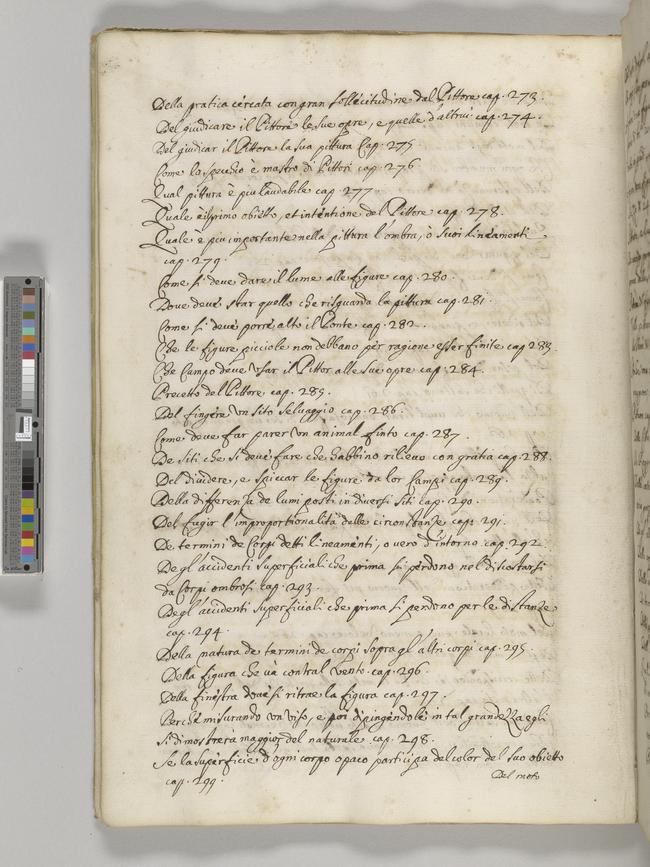 Della pratica cercata con gran sollecitudine dal Pittore cap. 273.
Del giudicare il Pittore le sue opre, e quelle d'altrui cap. 274.
Del giudicar il Pittore la sua pittura Cap. 275
Come lo specchio è mastro di Pittori cap. 276
Qual pittura è piu laudabile cap. 277
Quale è il primo obietto, et intentione del Pittore cap. 278.
Quale e piu importante nella pittura l'ombra, ò suoi lineamenti
cap. 279.
Come si deve dare il lume alle figure cap. 280.
Dove deve star quello che risguarda la pittura cap. 281.
Come si deve porre alto il Ponte cap. 282.
Che le figure picciole non debbano per ragione esser finite cap 283.
Che Campo deve usar il Pittor alle sue opre cap. 284.
Precetto del Pittore cap. 285.
Del fingere un sito Selvaggio cap. 286.
Come deve far parer un animal finto cap. 287.
De Siti che si deve fare che habbino rilievo con gratia cap. 288.
Del dividere, e spiccar le figure da lor Campi cap. 289.
Della differenza de lumi posti in diversi siti Cap. 290.
Del fugir l'improportionalità delle circonstanze cap. 291.
De termini de Corpi detti lineamenti, o vero d'intorno cap. 292.
Degl'accidenti superficiali che prima si perdono nel discostarsi
da Corpi ombrosi Cap. 293.
Degl'accidenti superficiali che prima si perdono per le distanze
cap. 294.
Della natura de termini de corpi sopra gl'altri corpi cap. 295.
Della figura che và contral vento cap. 296.
Della finestra dove si ritrae la figura cap. 297.
Perche misurando un viso, e poi dipingendolo in tal grandezza egli
si dimostrerà maggior del naturale cap. 298.
Se la superficie d'ogni corpo opaco participa del color del suo obietto
cap. 299.
Del moto